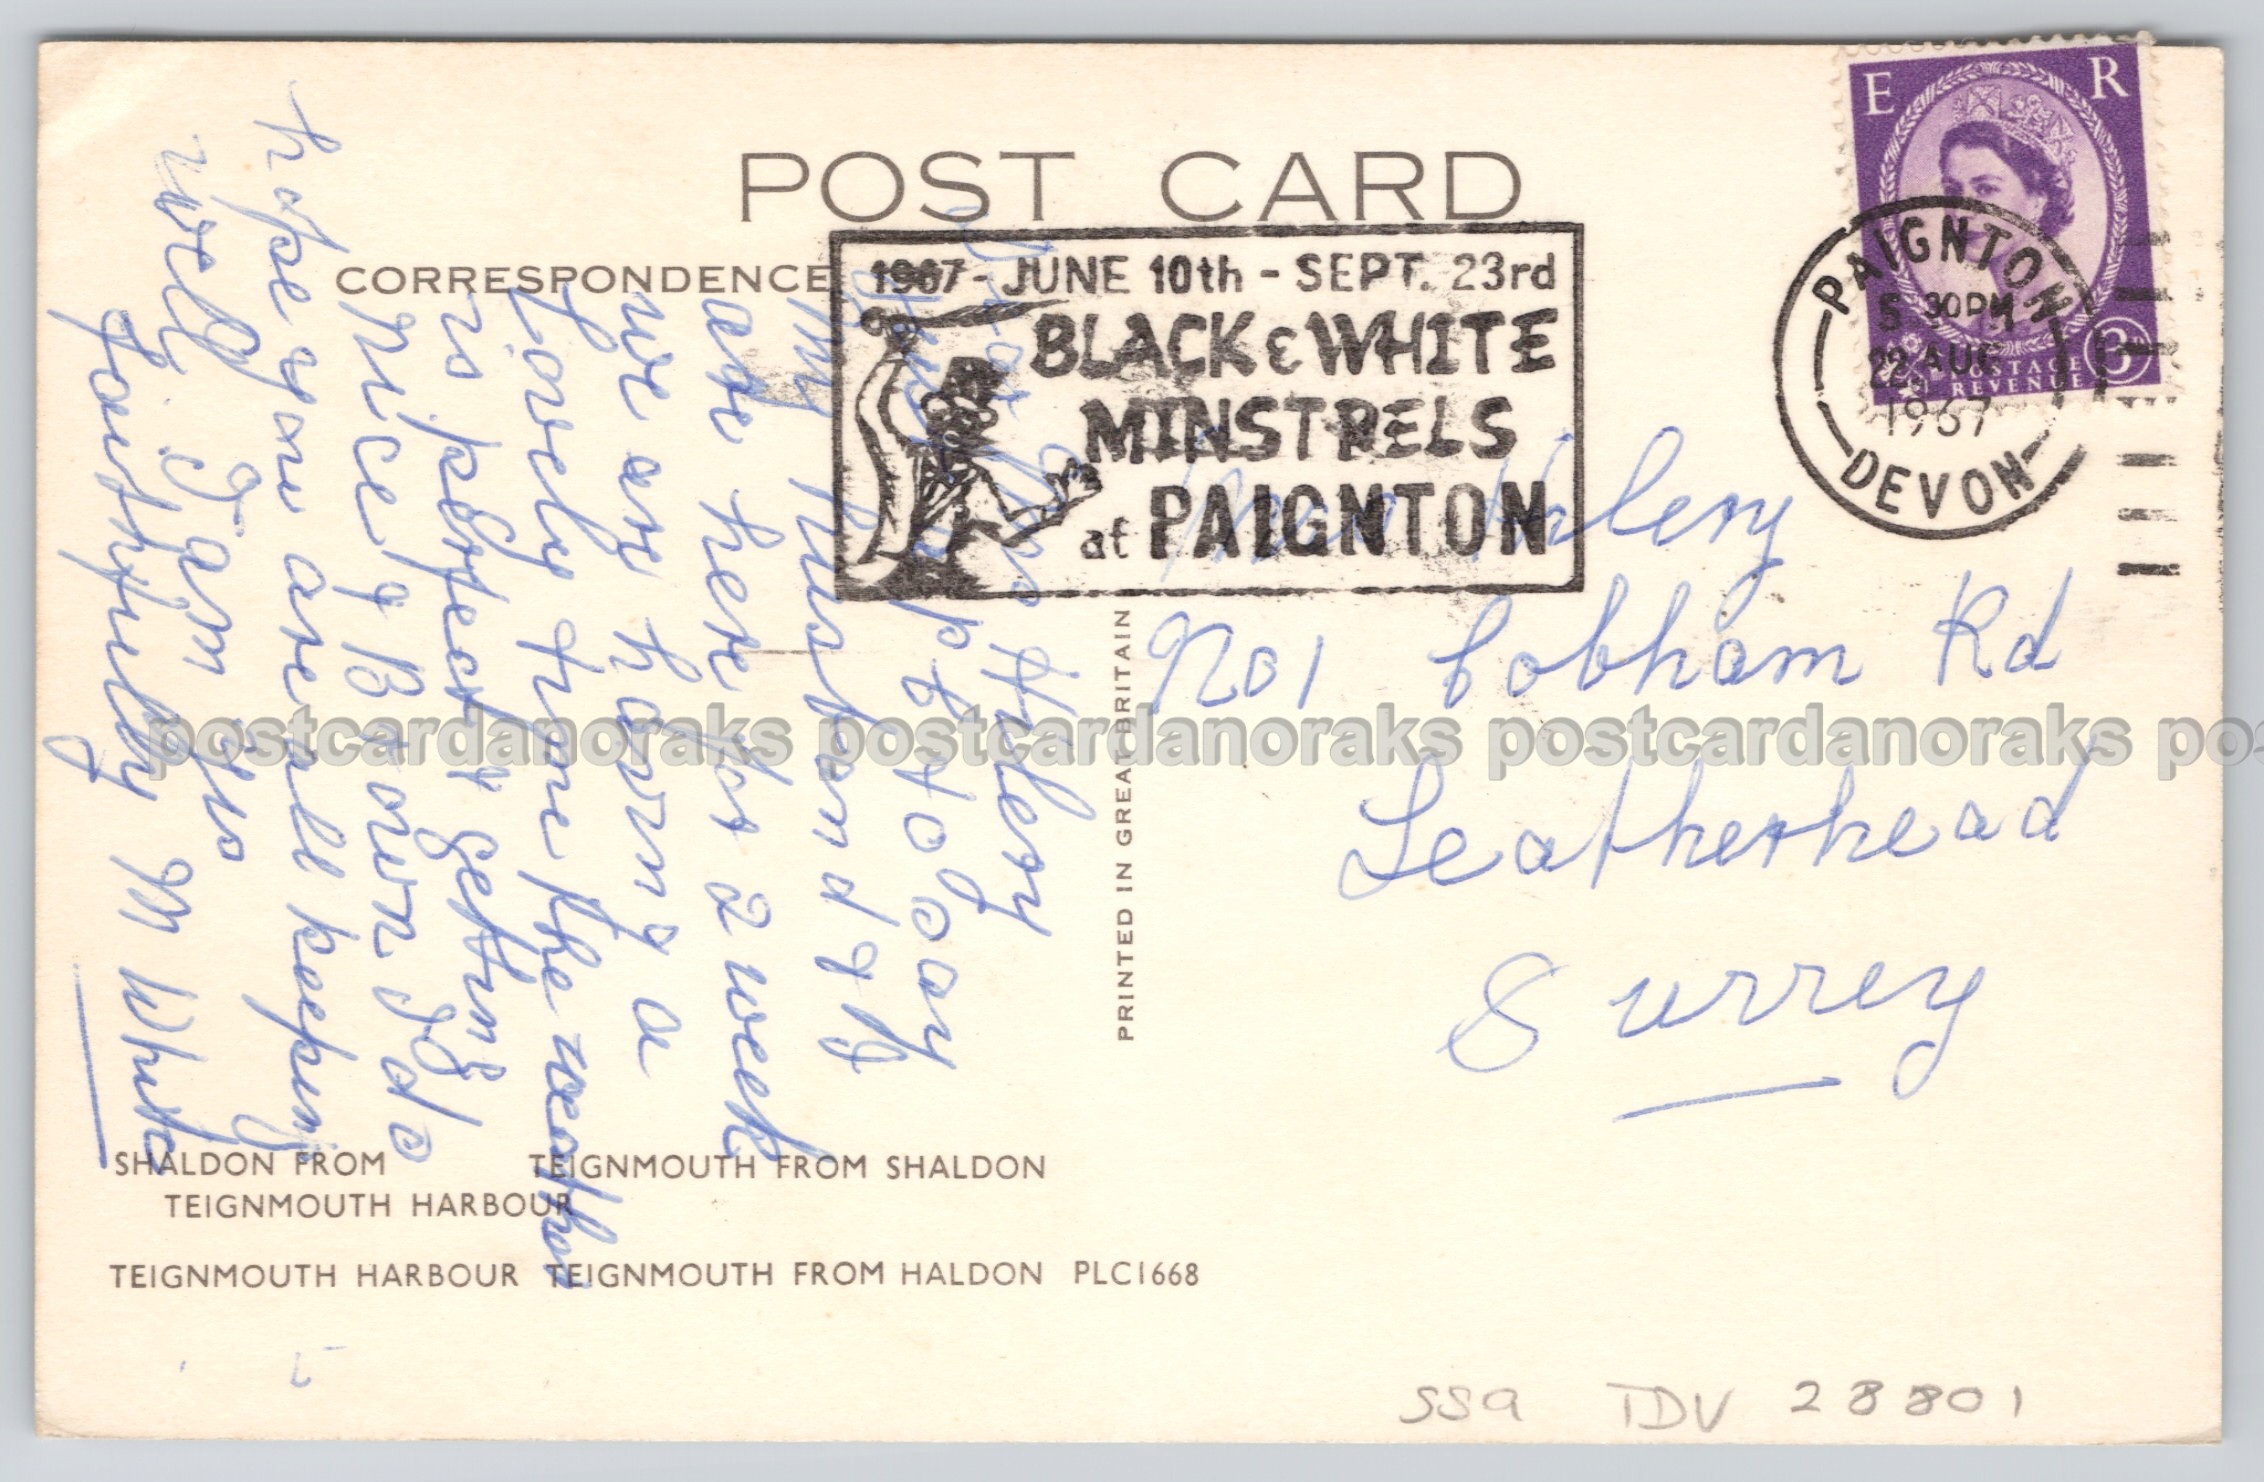 POST CARD
CORRESPONDENCE
1967 - JUNE 10th - SEPT. 23rd
BLACK & WHITE
MINSTRELS
at PAIGNTON
E R
POSTAGE
REVENUE
3
PAIGNTON
5 30PM
22 AUG
1967
DEVON
Hilery
my husband & I
are here for 2 week
we are having a
Lovely time the weather
is perfect & getting
Nice & Brown I do
hope you are all keeping
well I am yrs
faithfully M White
Hilery
No 1 Cobham Rd
Leatherhead
Surrey
PRINTED IN GREAT BRITAIN
postcardanoraks postcardanoraks postcardanoraks pos
SHALDON FROM
TEIGNMOUTH HARBOUR
TEIGNMOUTH FROM SHALDON
TEIGNMOUTH HARBOUR TEIGNMOUTH FROM HALDON PLC1668
SSa TDV 28801